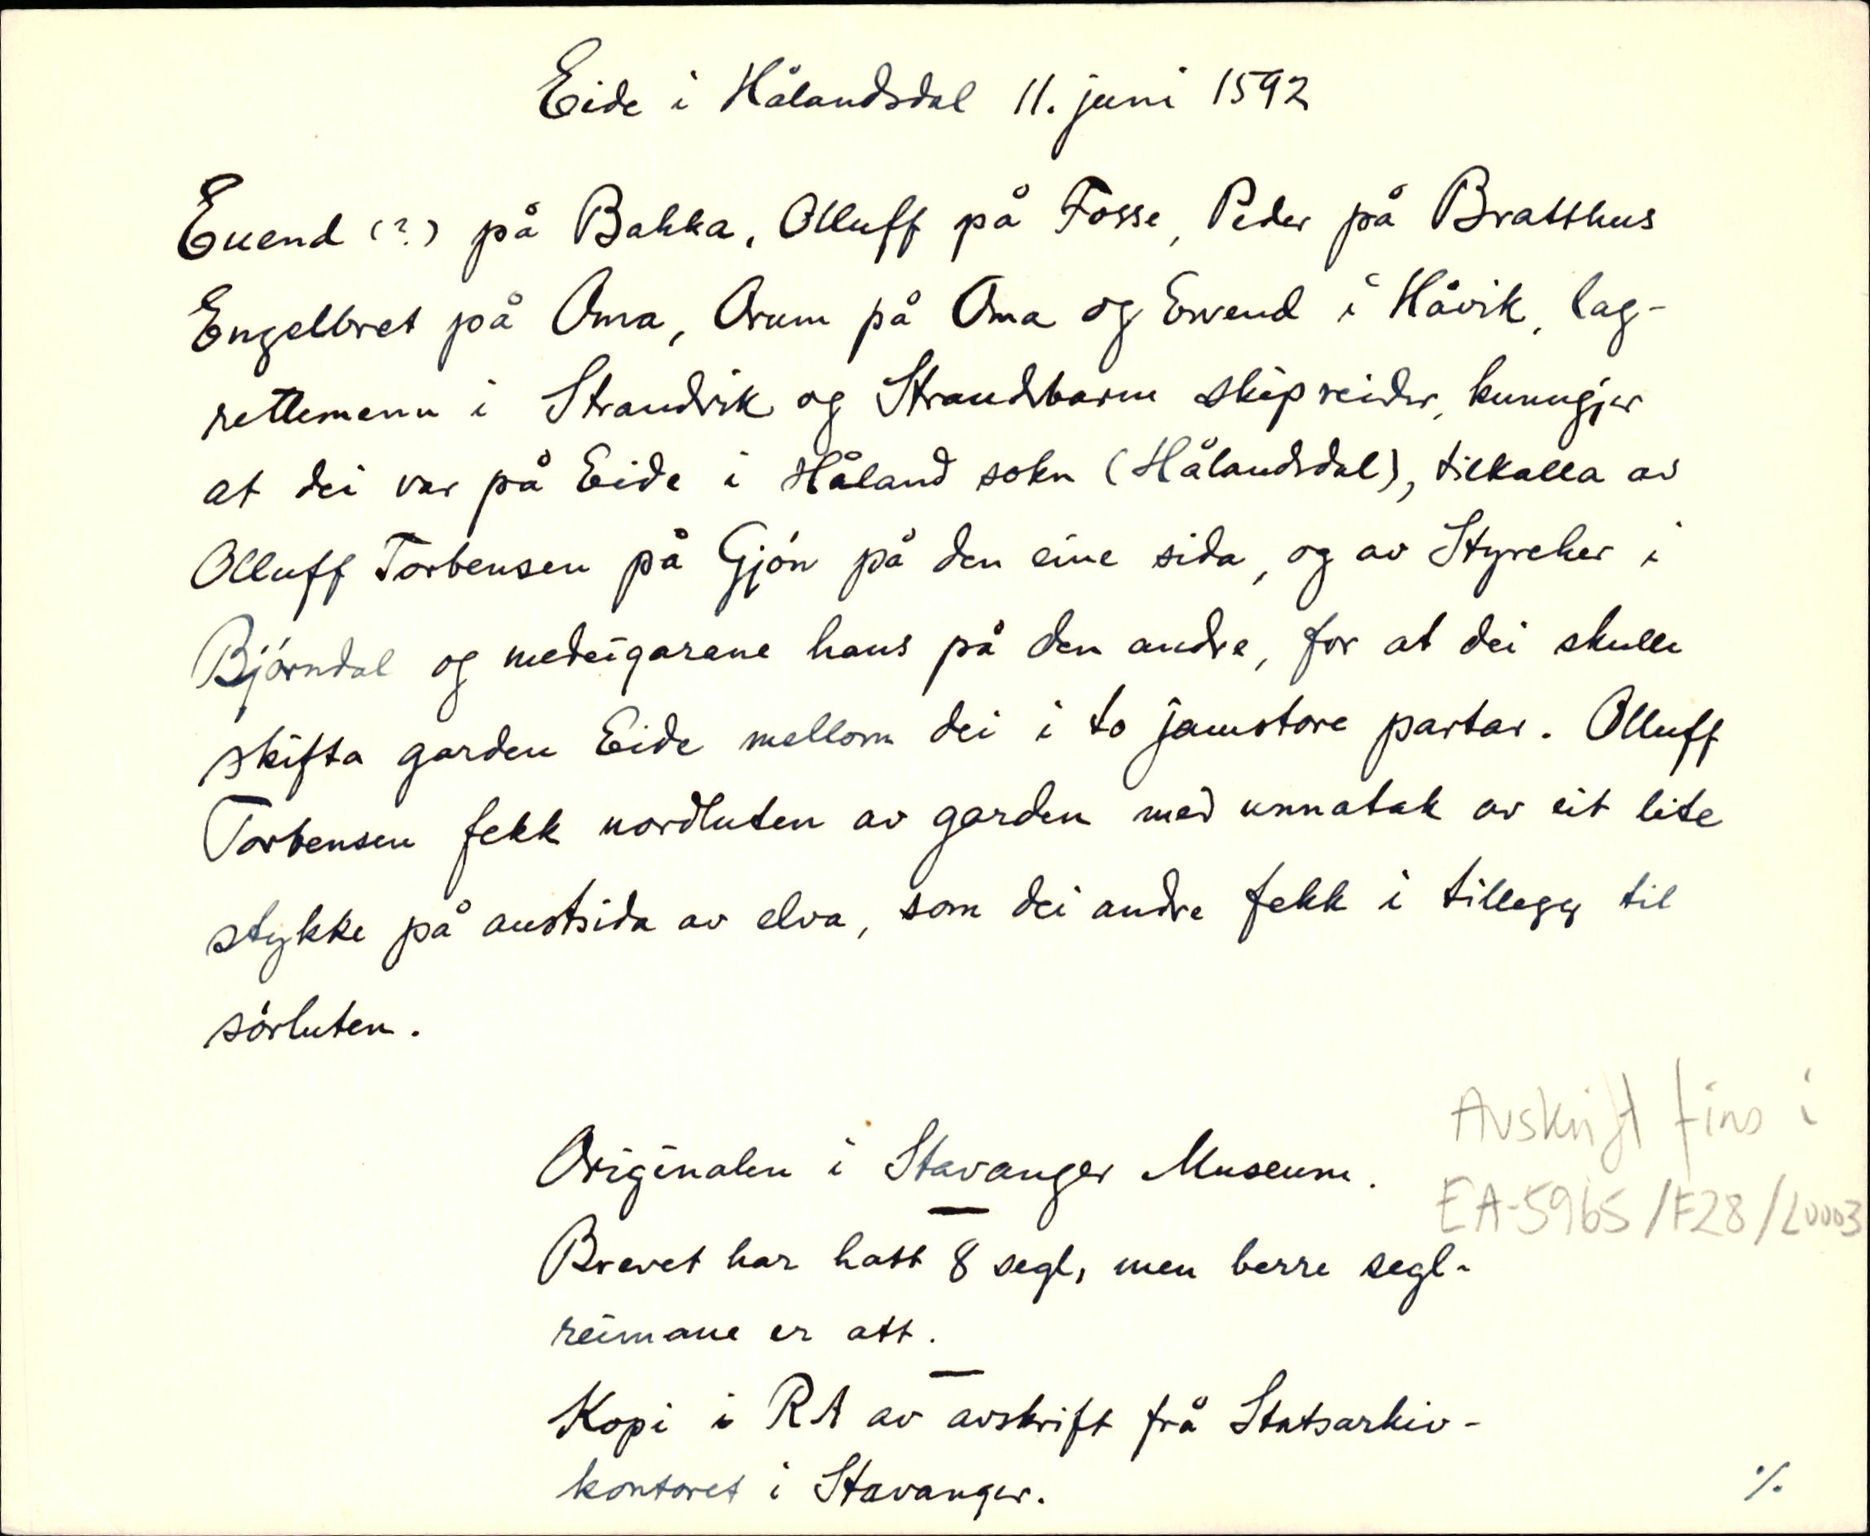 Eide i Hålandsdal 11. juni 1592
Euend (?) på Bakka, Olluff på Fosse, Peder på Bratthus
Engelbret på Oma, Orum på Oma og Envend i Håvik, lag-
rettemenn i Strandvik og Strandbarm skipreider, kunngjer
at dei var på Eide i Håland sokn (Hålandsdal), tilkalla av
Olluff Torbensen på Gjón på den eine sida, og av Styrcker i
Bjórndal og medeigarane hans på den andre, for at dei skulle
skifta garden Eide mellom dei i to jamstore partar. Olluff
Torbensen fekk nordluten av garden med unnatak av eit lite
stykke på austsida av elva, som dei andre fekk i tillegg til
sórluten.
Originalen i Stavanger Museum.
Avskrift fins i
EA-5965/F28/L0003
Brevet har hatt 8 segl, men berre segl-
reimane er att.
Kopi i RA av avskrift frå Statsarkiv-
kontoret i Stavanger.
./.